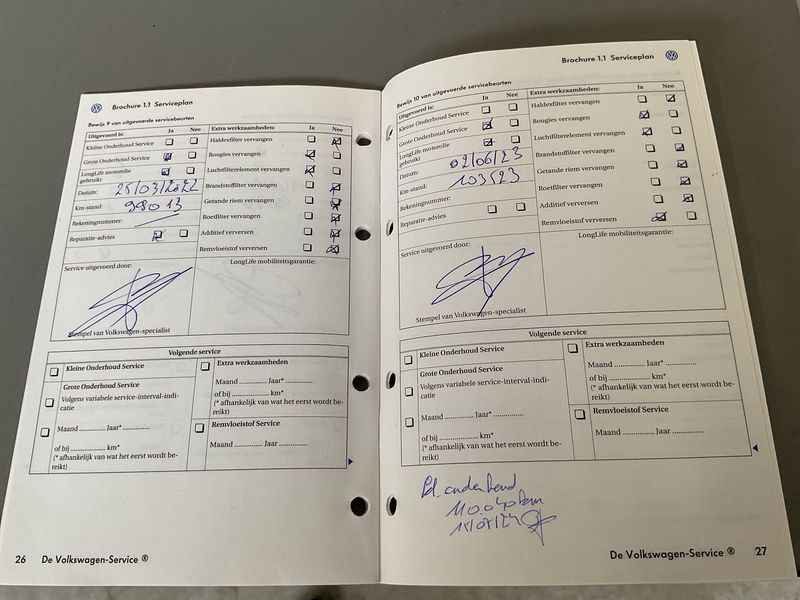 Brochure 1.1 Serviceplan
Bewijs 9 van uitgevoerde servicebeurten
Uitgevoerd is: Ja Nee
Kleine Onderhoud Service
Grote Onderhoud Service
LongLife motorolie gebruikt
Datum: 25/03/2022
Km-stand: 98013
Rekeningnummer:
Reparatie-advies
Extra werkzaamheden: Ja Nee
Haldexfilter vervangen
Bougies vervangen
Luchtfilterelement vervangen
Brandstoffilter vervangen
Getande riem vervangen
Roetfilter vervangen
Additief verversen
Remvloeistof verversen
Service uitgevoerd door:
Stempel van Volkswagen-specialist
LongLife mobiliteitsgarantie:
Volgende service
Kleine Onderhoud Service
Grote Onderhoud Service
Volgens variabele service-interval-indi-
catie
Maand .............. Jaar* ..............
of bij .............. km*
(* afhankelijk van wat het eerst wordt be-
reikt)
Extra werkzaamheden
Maand .............. Jaar* ..............
of bij .............. km*
(* afhankelijk van wat het eerst wordt be-
reikt)
Remvloeistof Service
Maand .............. Jaar ..............
26 De Volkswagen-Service ®
Brochure 1.1 Serviceplan
Bewijs 10 van uitgevoerde servicebeurten
Uitgevoerd is: Ja Nee
Kleine Onderhoud Service
Grote Onderhoud Service
LongLife motorolie
gebruikt
Datum: 02/06/23
Km-stand: 103523
Rekeningnummer:
Reparatie-advies
Extra werkzaamheden: Ja Nee
Haldexfilter vervangen
Bougies vervangen
Luchtfilterelement vervangen
Brandstoffilter vervangen
Getande riem vervangen
Roetfilter vervangen
Additief verversen
Remvloeistof verversen
Service uitgevoerd door:
Stempel van Volkswagen-specialist
LongLife mobiliteitsgarantie:
Volgende service
Kleine Onderhoud Service
Grote Onderhoud Service
Volgens variabele service-interval-indi-
catie
Maand .............. Jaar* ..............
of bij .............. km*
(* afhankelijk van wat het eerst wordt be-
reikt)
Extra werkzaamheden
Maand .............. Jaar* ..............
of bij .............. km*
(* afhankelijk van wat het eerst wordt be-
reikt)
Remvloeistof Service
Maand .............. Jaar ..............
onderhoud
110.040 km
De Volkswagen-Service ® 27